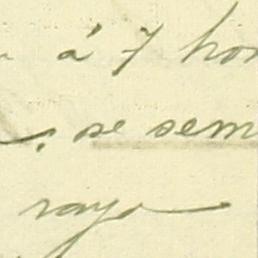 á 7 hor
; se sem
raya